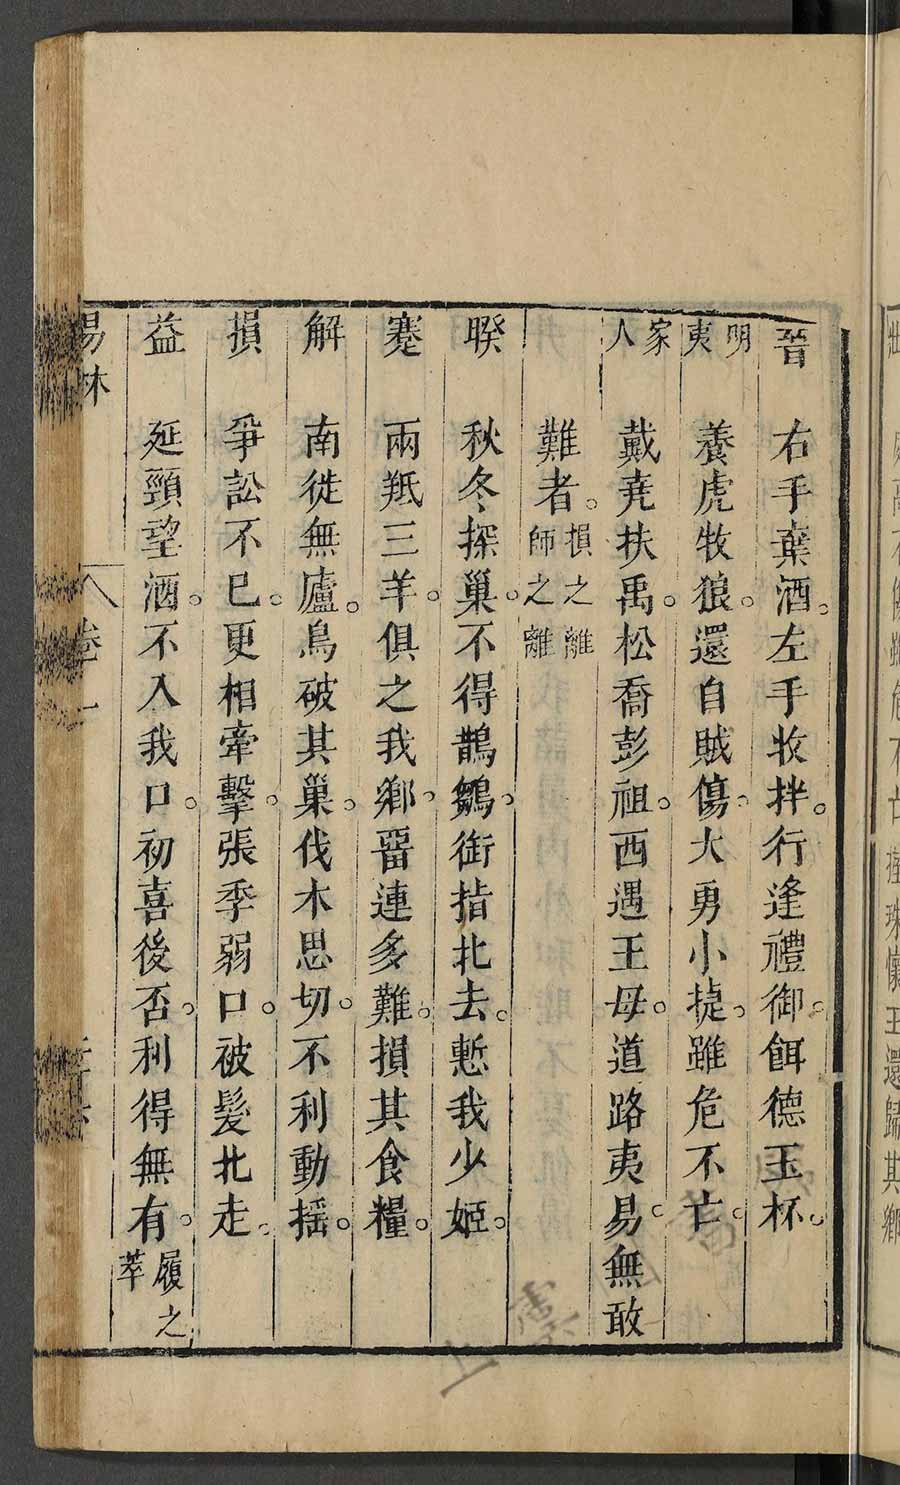 晉 右手棄酒左手收拌行逢禮御餌德玉杯
明夷 養虎牧狼還自賊傷大勇小捷雖危不亡
家人 戴堯扶禹松喬彭祖西遇王母道路夷易無敢
難者 損之離 師之離
睽 秋冬探巢不得鵲鶵銜指北去慙我少姬
蹇 兩羝三羊俱之我鄉畱連多難損其食糧
解 南徙無廬鳥破其巢伐木思切不利動搖
損 爭訟不已更相牽擊張季弱口被髮北走
益 延頸望酒不入我口初喜後否利得無有 履之萃
易林 卷一